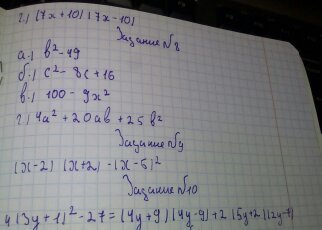 г.) (7x+10)(7x-10)
Задание №8
а.) b²-49
б.) c²-8c+16
в.) 100-9x²
г.) 4a²+20ab+25b²
Задание №9
(x-2)(x+2)-(x-5)²
Задание №10
4(3y+1)²-27=(4y+9)(4y-9)+2(5y+2)(2y-7)